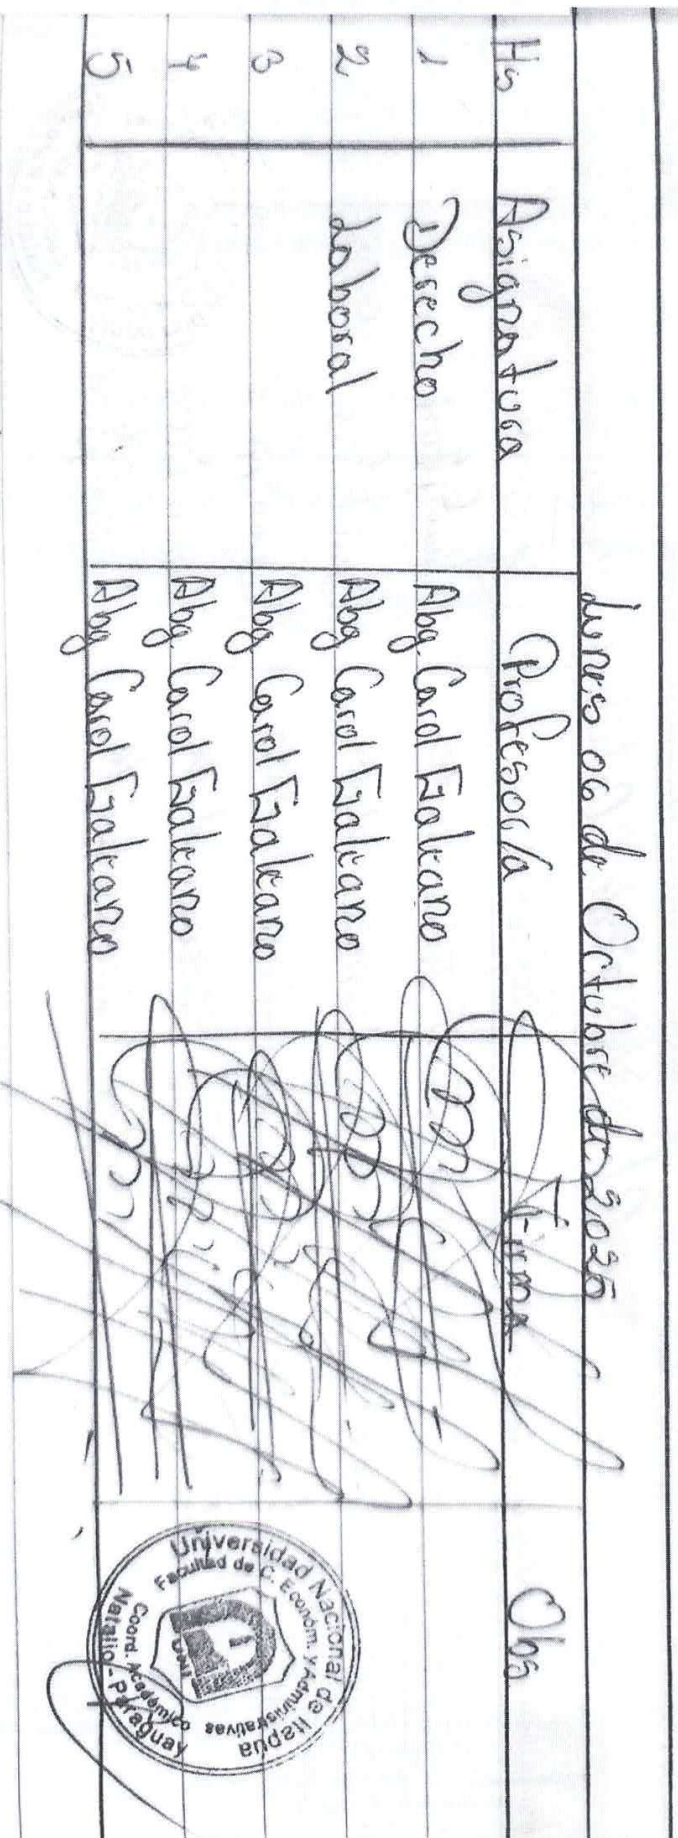 Lunes 06 de Octubre de 2025
Hs Asignatura Profesor/a Firma Obs
1 Derecho Abg Carol Galeano
2 Laboral Abg Carol Galeano
3 Abg Carol Galeano
4 Abg Carol Galeano
5 Abg Carol Galeano
Universidad Nacional de Itapúa
Facultad de C. Económ. y Administrativas
UNI
Coord. Académico
Natalio - Paraguay